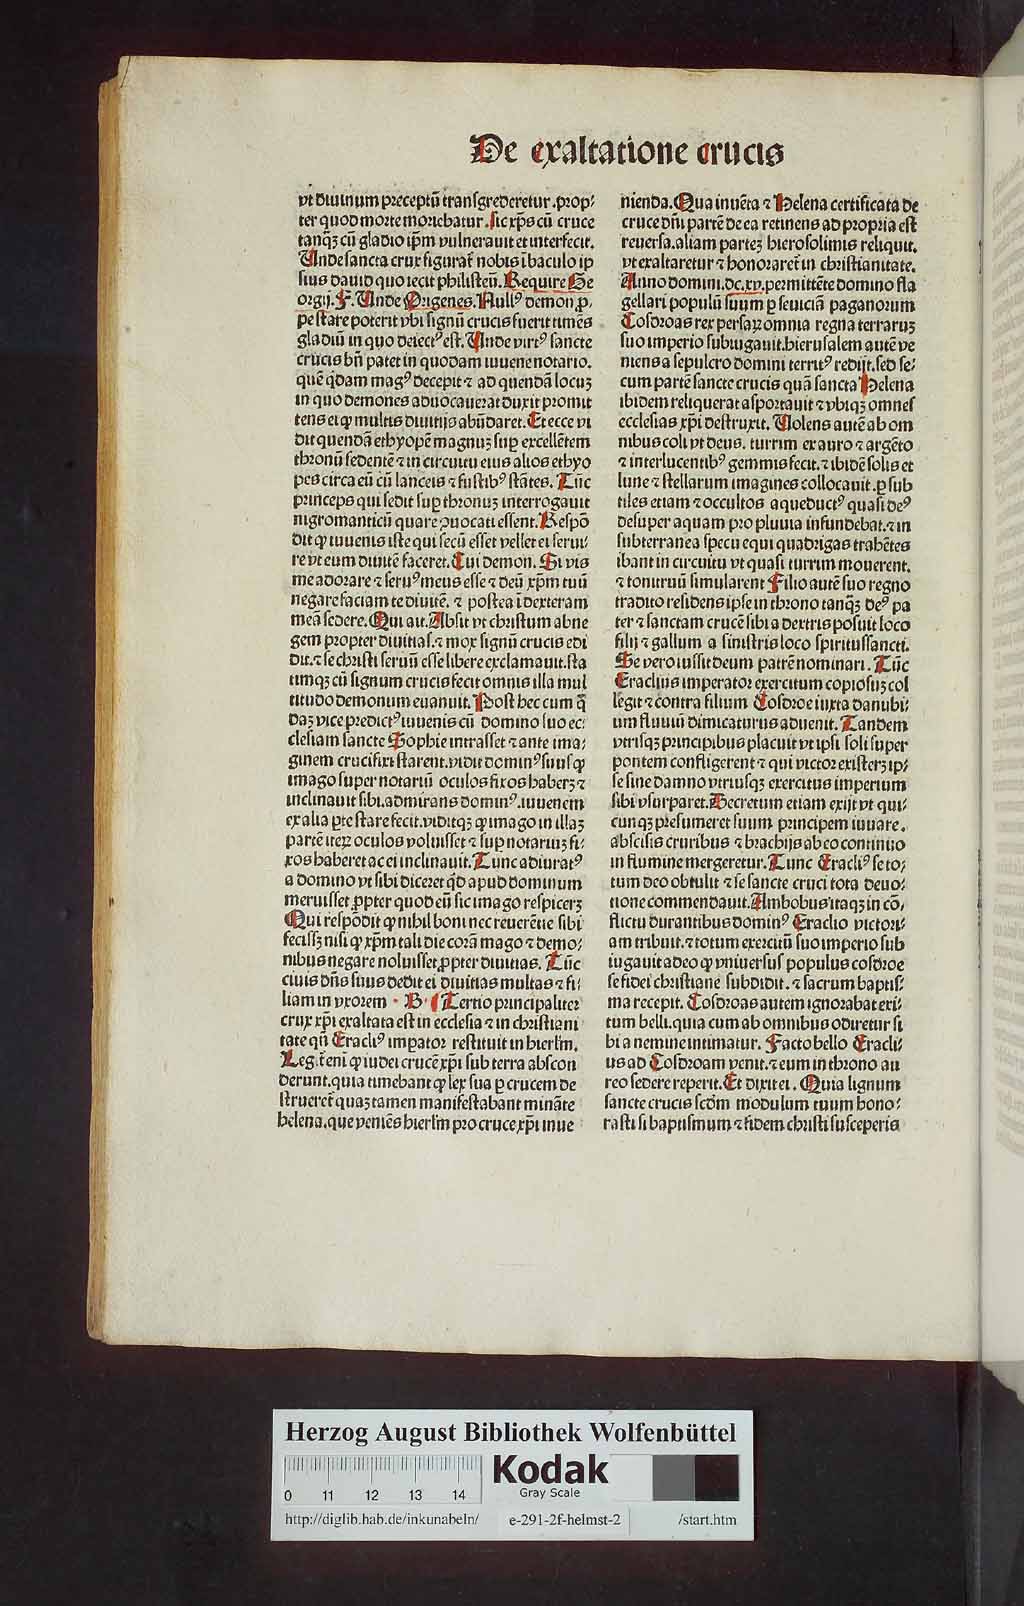 De exaltatione crucis
vt diuinum preceptū transgrederetur .prop⸗
ter quod morte moriebatur . sic xp̄s cū cruce
tanqꝫ cū gladio ip̄m vulnerauit et interfecit.
Unde sancta crux figurat᷑ nobis ī baculo ip
sius dauid quo iecit philisteū. Require Ge
orgij. F. Unde Origenes. Nullꝰ demon ꝓ⸗
pe stare poterit vbi signū crucis fuerit timēs
gladiū in quo deiectꝰ est. Unde virtꝰ sancte
crucis bn̄ patet in quodam iuuene notario.
quē q̇dam magꝰ decepit ⁊ ad quendā locuꝫ
in quo demones aduocauerat duxit promit
tens ei ꝙ multis diuitijs abūdaret. Et ecce vi
dit quendā ethyopē magnuꝫ suꝑ excellētem
thronū sedentē ⁊ in circuitu eius alios ethyo
pes circa eū cū lanceis ⁊ fustibꝰ stātes. Tūc
princeps qui sedit suꝑ thronuꝫ interrogauit
nigromanticū quare ꝓuocati essent. Respō
dit ꝙ iuuenis iste qui secū esset vellet ei serui⸗
re vt eum diuitē faceret. Cui demon. Si vis
me adorare ⁊ seruꝰ meus esse ⁊ deū xp̄m tuū
negare faciam te diuitē. ⁊ postea ī dexteram
meā sedere. Qui ait. Absit vt christum abne
gem propter diuitias. ⁊ mox signū crucis edi
dit. ⁊ se christi seruū esse libere exclamauit. sta
timqꝫ cū signum crucis fecit omnis illa mul
titudo demonum euanuit. Post hec cum q̄
daꝫ vice predictꝰ iuuenis cū domino suo ec⸗
clesiam sancte Sophie intrasset ⁊ ante ima⸗
ginem crucifixi starent. vidit dominꝰ suus ꝙ
imago super notariū oculos fixos haberꝫ ⁊
inclinauit sibi. admirans dominꝰ .iuuenem
ex alia ꝑte stare fecit. viditqꝫ ꝙ imago in illaꝫ
partē iteꝝ oculos voluisset ⁊ suꝑ notariuꝫ fi⸗
xos haberet ac ei inclinauit. Tunc adiuratꝰ
a domino vt sibi diceret q̇d apud dominum
meruisset ꝓpter quod eū sic imago respicerꝫ
Qui respōdit ꝙ nihil boni nec reuerētie sibi
fecissꝫ nisi ꝙ xp̄m tali die corā mago ⁊ demo⸗
nibus negare noluisset ꝓpter diuitias. Tūc
ciuis dn̄s suus dedit ei diuitias multas ⁊ fi⸗
liam in vxorem · B · Tertio principaliter
crux xp̄i exaltata est in ecclesia ⁊ in christiani
tate qn̄ Eracliꝰ imꝑator restituit in hierl̄m.
Leg.t᷑ eni ꝙ iudei crucē xp̄i sub terra abscon
derunt. quia timebant ꝙ lex sua ꝑ crucem de
strueret᷑ quaꝫ tamen manifestabant mināte
helena. que veniēs hierl̄m pro cruce xp̄i inue
nienda. Qua inuēta ⁊ Helena certificata de
cruce dn̄i partē de ea retinens ad propria est
reuersa. aliam partez hierosolimis reliquit.
vt exaltaretur ⁊ honoraret᷑ in christianitate.
Anno domini. dc. xv. permittēte domino fla
gellari populū suum ꝑ seuiciā paganorum
Cosdroas rex persaꝝ omnia regna terraruꝫ
suo imperio subiugauit. hierusalem autē ve
niens a sepulcro domini territꝰ redijt. sed se⸗
cum partē sancte crucis quā sancta Helena
ibidem reliquerat asportauit ⁊ vbiqꝫ omnes
ecclesias xp̄i destruxit. Uolens autē ab om
nibus coli vt deus. turrim ex auro ⁊ argēto
⁊ interlucentibꝰ gemmis fecit. ⁊ ibidē solis et
lune ⁊ stellarum imagines collocauit. ꝑ sub
tiles etiam ⁊ occultos aqueductꝰ quasi deꝰ
desuper aquam pro pluuia infundebat. ⁊ in
subterranea specu equi quadrigas trahētes
ibant in circuitu vt quasi turrim mouerent.
⁊ tonitruū simularent Filio autē suo regno
tradito residens ipse in throno tanqꝫ deꝰ pa
ter ⁊ sanctam crucē sibi a dextris posuit loco
filij ⁊ gallum a sinistris loco spiritussancti.
Se vero iussit deum patrē nominari. Tūc
Eraclius imperator exercitum copiosuꝫ col
legit ⁊ contra filium Cosdroe iuxta danubi⸗
um fluuiū dimicaturus aduenit. Tandem
vtrisqꝫ principibus placuit vt ipsi soli super
pontem confligerent ⁊ qui victor existerꝫ ip⸗
se sine damno vtriusqꝫ exercitus imperium
sibi vsurparet. Decretum etiam exijt vt qui⸗
cunqꝫ presumeret suum principem iuuare.
abscisis cruribus ⁊ brachijs ab eo continuo
in flumine mergeretur. Tunc Eracliꝰ se to⸗
tum deo obtulit ⁊ se sancte cruci tota deuo⸗
tione commendauit. Ambobus itaqꝫ in cō⸗
flictu durantibus dominꝰ Eraclio victori⸗
am tribuit. ⁊ totum exercitū suo imperio sub
iugauit adeo ꝙ vniuersus populus cosdroe
se fidei christiane subdidit. ⁊ sacrum baptis⸗
ma recepit. Cosdroas autem ignorabat exi⸗
tum belli. quia cum ab omnibus odiretur si
bi a nemine intimatur. Facto bello Eracli⸗
us ad Cosdroam venit. ⁊ eum in throno au
reo sedere reperit. Et dixit ei . Quia lignum
sancte crucis scd̄m modulum tuum hono⸗
rasti si baptismum ⁊ fidem christi susceperis
Herzog August Bibliothek Wolfenbüttel
0 11 12 13 14
Kodak
Gray Scale
http://diglib.hab.de/inkunabeln/ e-291-2f-helmst-2 /start.htm